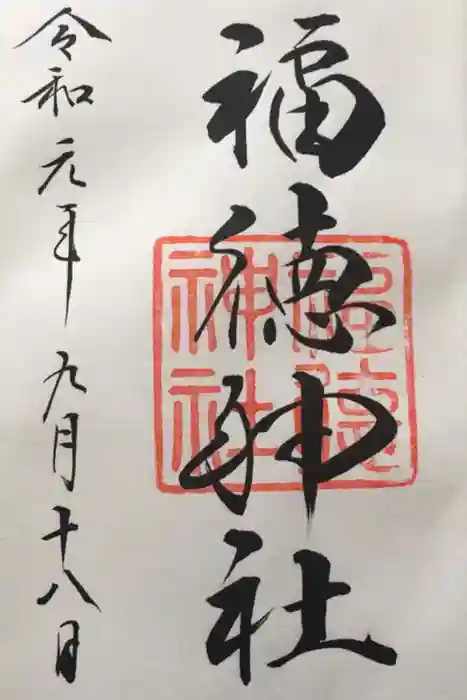 福徳神社
福徳神社
令和元年九月十八日